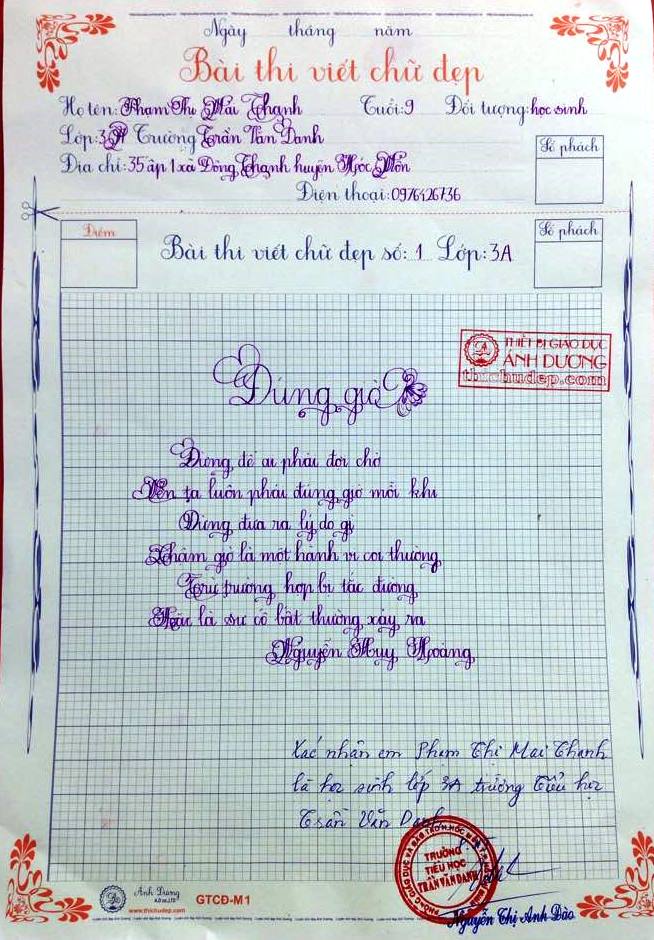 Ngày tháng năm
Bài thi viết chữ đẹp
Họ tên: Phạm Thị Mai Thanh Tuổi: 9 Đối tượng: học sinh
Lớp: 3A Trường Trần Văn Danh
Địa chỉ: 35 ấp 1 xã Đông Thạnh huyện Hóc Môn
Số phách
Điện thoại: 0976426736
Điểm
Bài thi viết chữ đẹp số: 1 Lớp: 3A
Số phách
THIẾT BỊ GIÁO DỤC
ÁNH DƯƠNG
thichudep.com
Đúng giờ
Đừng để ai phải đợi chờ
Nên ta luôn phải đúng giờ mỗi khi
Đừng đưa ra lý do gì
Chậm giờ là một hành vi coi thường
Trừ trường hợp bị tắc đường
Hoặc là sự cố bất thường xảy ra
Nguyễn Huy Hoàng
Xác nhận em Phạm Thị Mai Thanh
là học sinh lớp 3A trường Tiểu học
Trần Văn Danh
TRƯỜNG
TIỂU HỌC
TRẦN VĂN DANH
Ánh Dương
www.thichudep.com
GTCĐ-M1
Nguyễn Thị Anh Đào